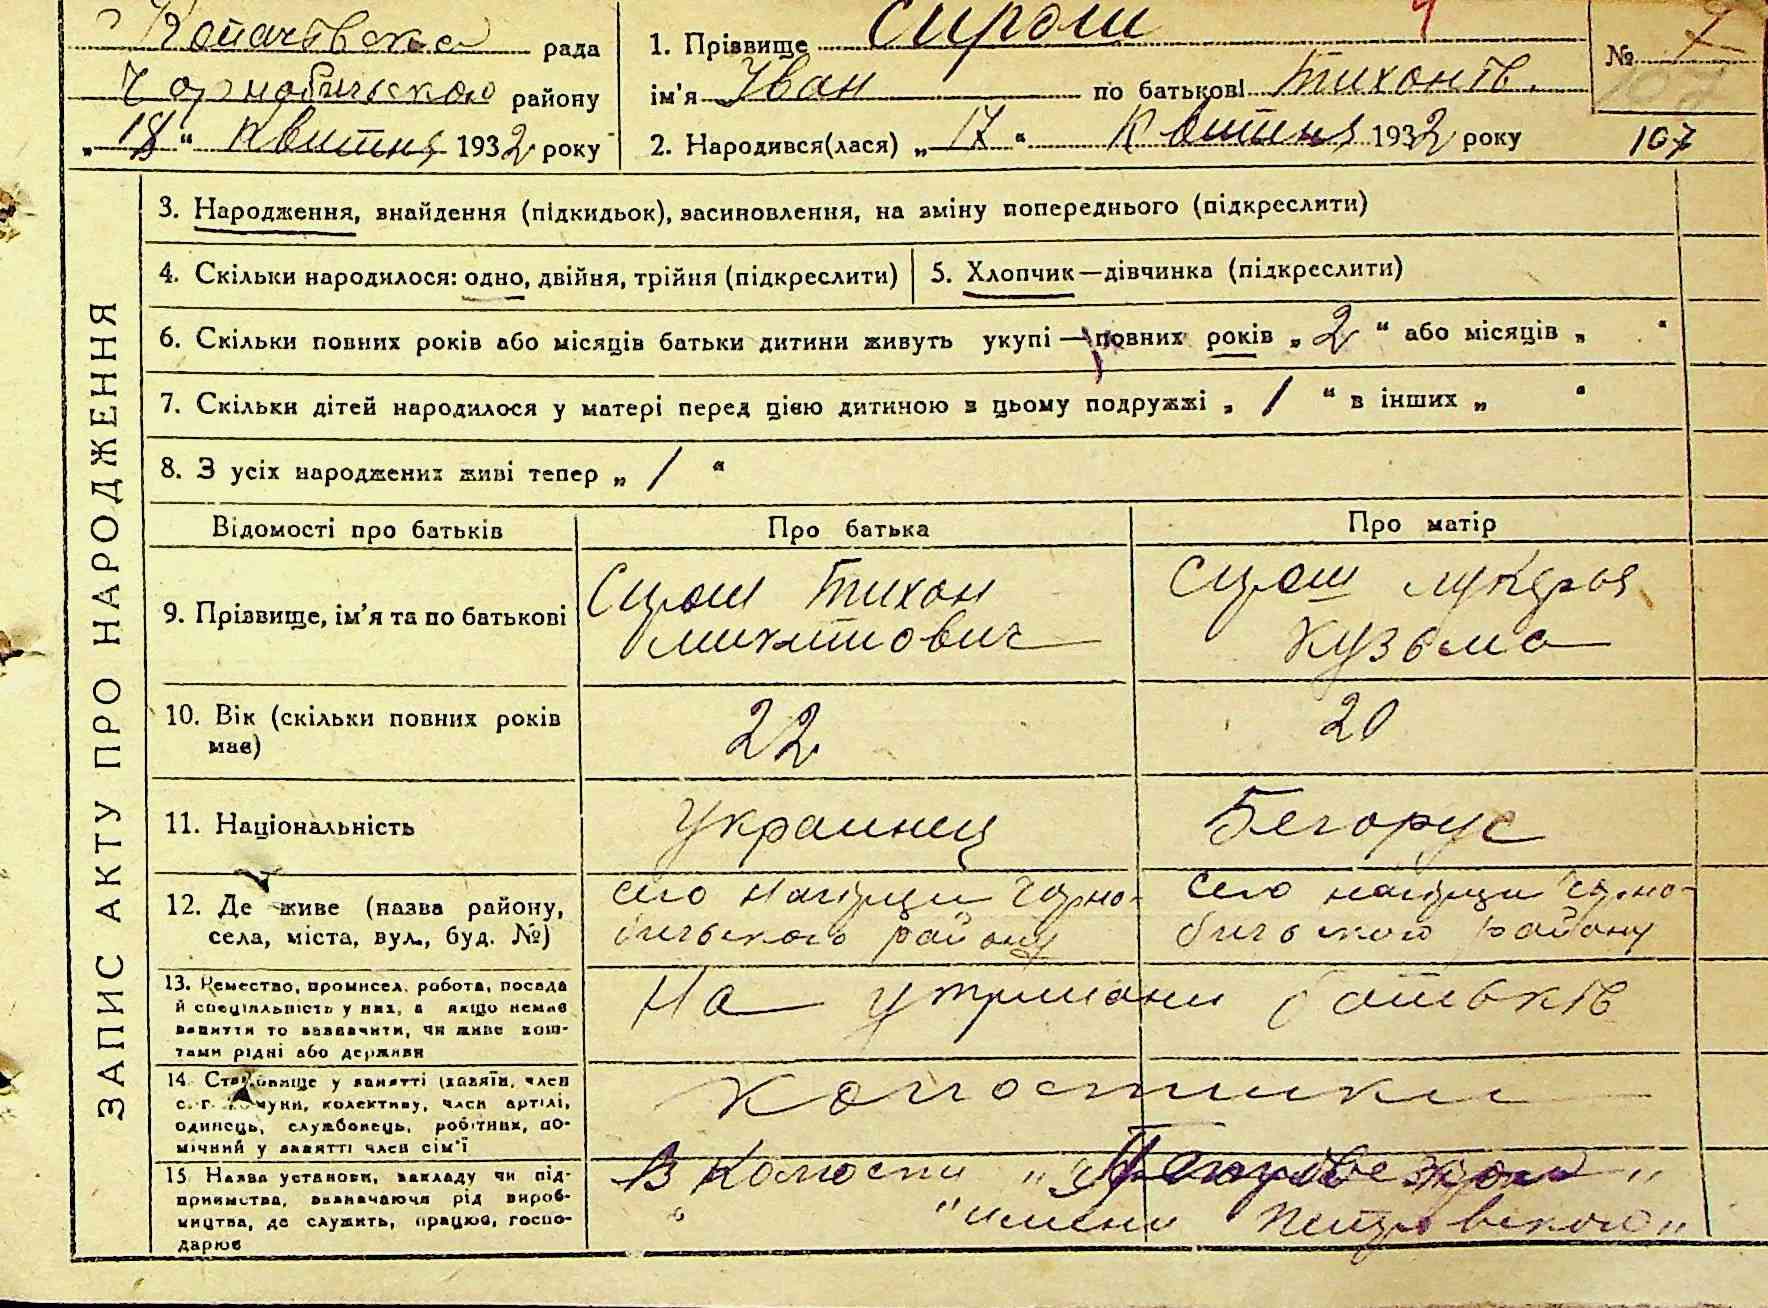 Копачівська рада
Чорнобильського району
„ 18 “ Квитня 1932 року
1. Прізвище Сирош
ім'я Іван по батькові Тихонів.
2. Народився(лася) „ 17 “ Квитня 1932 року
№ 7
107
ЗАПИС АКТУ ПРО НАРОДЖЕННЯ
3. Народження, внайдення (підкидьок), засиновлення, на зміну попереднього (підкреслити)
4. Скільки народилося: одно, двійня, трійня (підкреслити)
5. Хлопчик—дівчинка (підкреслити)
6. Скільки повних років або місяців батьки дитини живуть укупі — повних років „ 2 “ або місяців „ “
7. Скільки дітей народилося у матері перед цією дитиною в цьому подружжі „ 1 “ в інших „ “
8. З усіх народжених живі тепер „ 1 “
Відомості про батьків Про батька Про матір
9. Прізвище, ім'я та по батькові
Сирош Тихон
Сирош Лукерья
Кузьма
10. Вік (скільки повних років має)
22
20
11. Національність
Украинец
Белорус
12. Де живе (назва району,
села, міста, вул., буд. №)
село Нагірци Чорно-
бильского району
село Нагірци Чорно-
бильского району
13. Ремество, промисел, робота, посада
й спеціяльність у них, а якщо немає
заняття то зазначити, чи живе кош-
тами рідні або держави
На утримани батьків
14. Становище у занятті (хазяїн, член
с.-г. комуни, колективу, член артілі,
одинець, службовець, робітник, по-
мічний у занятті член сім'ї
Колгоспники
15 Назва установи, закладу чи під-
приємства, зазначаючи рід вироб-
ництва, де служить, працює, госпо-
дарює
В Колгоспи
"имени Петровского"